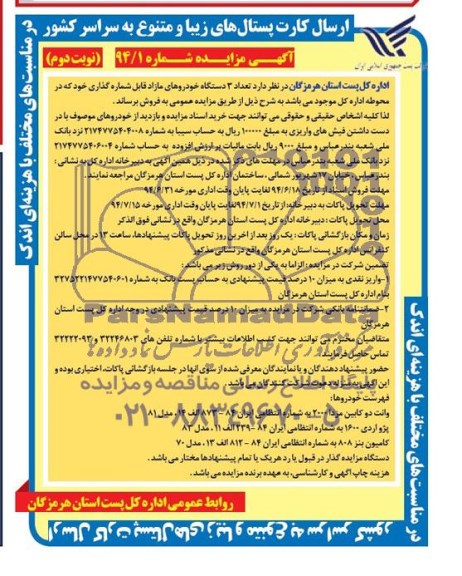 ارسال کارت پستال‌های زیبا و متنوع به سراسر کشور
آگهی مزایده شماره ۹۴/۱ (نوبت دوم)
شرکت پست جمهوری اسلامی ایران
در مناسبت‌های مختلف با هزینه‌ای اندک
اداره کل پست استان هرمزگان در نظر دارد تعداد ۳ دستگاه خودروهای مازاد قابل شماره گذاری خود که در
محوطه اداره کل موجود می باشد به شرح ذیل از طریق مزایده عمومی به فروش برساند.
لذا کلیه اشخاص حقیقی و حقوقی می توانند جهت خرید اسناد مزایده و بازدید از خودروهای موصوف با در
دست داشتن فیش های واریزی به مبلغ ۱۰۰۰۰۰ ریال به حساب سیبا به شماره ۲۱۷۴۷۷۵۴۰۴۰۰۸ نزد بانک
ملی شعبه بندرعباس و مبلغ ۹۰۰۰ ریال بابت مالیات بر ارزش افزوده به حساب شماره ۲۱۷۴۷۷۵۴۰۶۰۰۴
نزد بانک ملی شعبه بندرعباس در مهلت های مقرر ذکر شده در ذیل همین آگهی به دبیرخانه اداره کل به نشانی :
بندرعباس، خیابان ۱۷ شهریور شمالی ، ساختمان اداره کل پست استان هرمزگان مراجعه نمایند.
مهلت فروش اسناد از تاریخ ۹۴/۶/۱۸ لغایت پایان وقت اداری مورخه ۹۴/۶/۳۱
مهلت تحویل پاکات به دبیرخانه: از تاریخ ۹۴/۷/۱ لغایت پایان وقت اداری مورخه ۹۴/۷/۱۵
محل تحویل پاکات : دبیرخانه اداره کل پست استان هرمزگان واقع در نشانی فوق الذکر
زمان و مکان بازگشائی پاکات : یک روز بعد از آخرین روز تحویل پاکات پیشنهادها، ساعت ۱۳ در محل سالن
کنفرانس اداره کل پست استان هرمزگان واقع در نشانی مذکور
تضمین شرکت در مزایده : الزاما به یکی از دو روش زیر می باشد :
۱-واریز نقدی به میزان ۱۰ درصد قیمت پیشنهادی به حساب پست بانک به شماره
بنام اداره کل پست استان هرمزگان
۲-ضمانتنامه بانکی شرکت در مزایده به میزان ۱۰ درصد قیمت پیشنهادی در وجه اداره کل پست استان
هرمزگان
متقاضیان محترم می توانند جهت کسب اطلاعات بیشتر با شماره تلفن های ۳۲۲۴۶۸۰۳ و ۳۲۲۲۲۰۹۳
تماس حاصل فرمایند.
حضور پیشنهاد دهندگان و یا نمایندگان معرفی شده از سوی آنها در جلسه بازگشائی پاکات، اختیاری بوده و
این آگهی به منزله دعوت شرکت کنندگان می باشد
فهرست خودروها:
وانت دو کابین مزدا ۲۰۰۰ به شماره انتظامی ایران ۸۴ - ۸۷۳ الف ۱۴، مدل ۸۱
پژو آردی ۱۶۰۰ به شماره انتظامی ایران ۸۴ - ۲۳۹ الف ۱۱، مدل ۸۳
کامیون بنز ۸۰۸ به شماره انتظامی ایران ۸۴ - ۸۱۲ الف ۱۳، مدل ۷۰
دستگاه مزایده گذار در قبول یا رد هر یک یا تمام پیشنهادها مختار می باشد.
هزینه چاپ آگهی و کارشناسی، به عهده برنده مزایده می باشد.
ParsNamadData
فن آوری اطلاعات پارس نماد داده‌ها
پایگاه اطلاع رسانی مناقصه و مزایده
۰۲۱-۸۸۳۴۹۶۷۰-۵
روابط عمومی اداره کل پست استان هرمزگان
در مناسبت‌های مختلف با هزینه‌ای اندک
ارسال کارت پستال‌های زیبا و متنوع به سراسر کشور